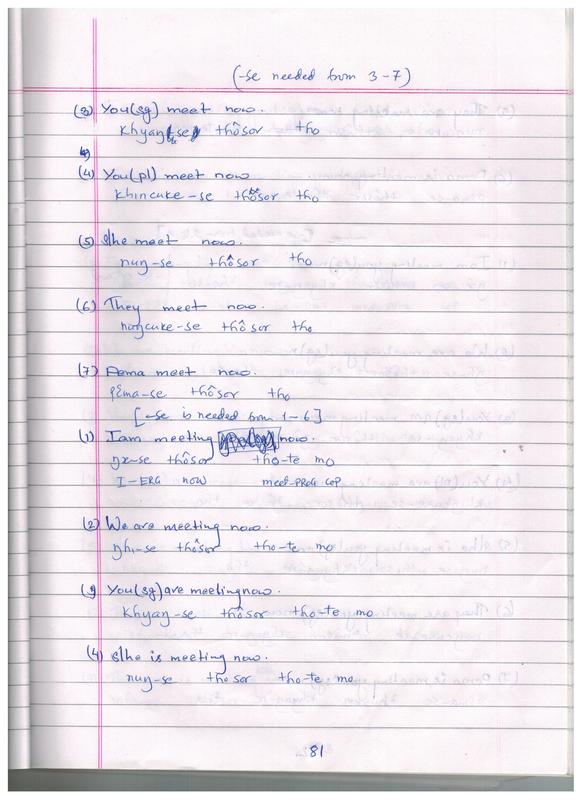 (-se needed from 3-7)
(3) You(sg) meet now.
khyaŋ-se thôsor tho
(4) You(pl) meet now
khincake-se thôsor tho
(5) S/he meet now.
nuŋ-se thôsor tho
(6) They meet now.
noŋcake-se thôsor tho
(7) Pema meet now.
pEma-se thôsor tho
[-se is needed from 1-6]
(1) I am meeting now.
ŋx-se thôsor tho-te mo
I-ERG now meet-PROG COP
(2) We are meeting now.
ŋhi-se thôsor tho-te mo
(3) You(sg) are meeting now.
khyaŋ-se thôsor tho-te mo
(4) S/he is meeting now.
nuŋ-se thosor tho-te mo
81